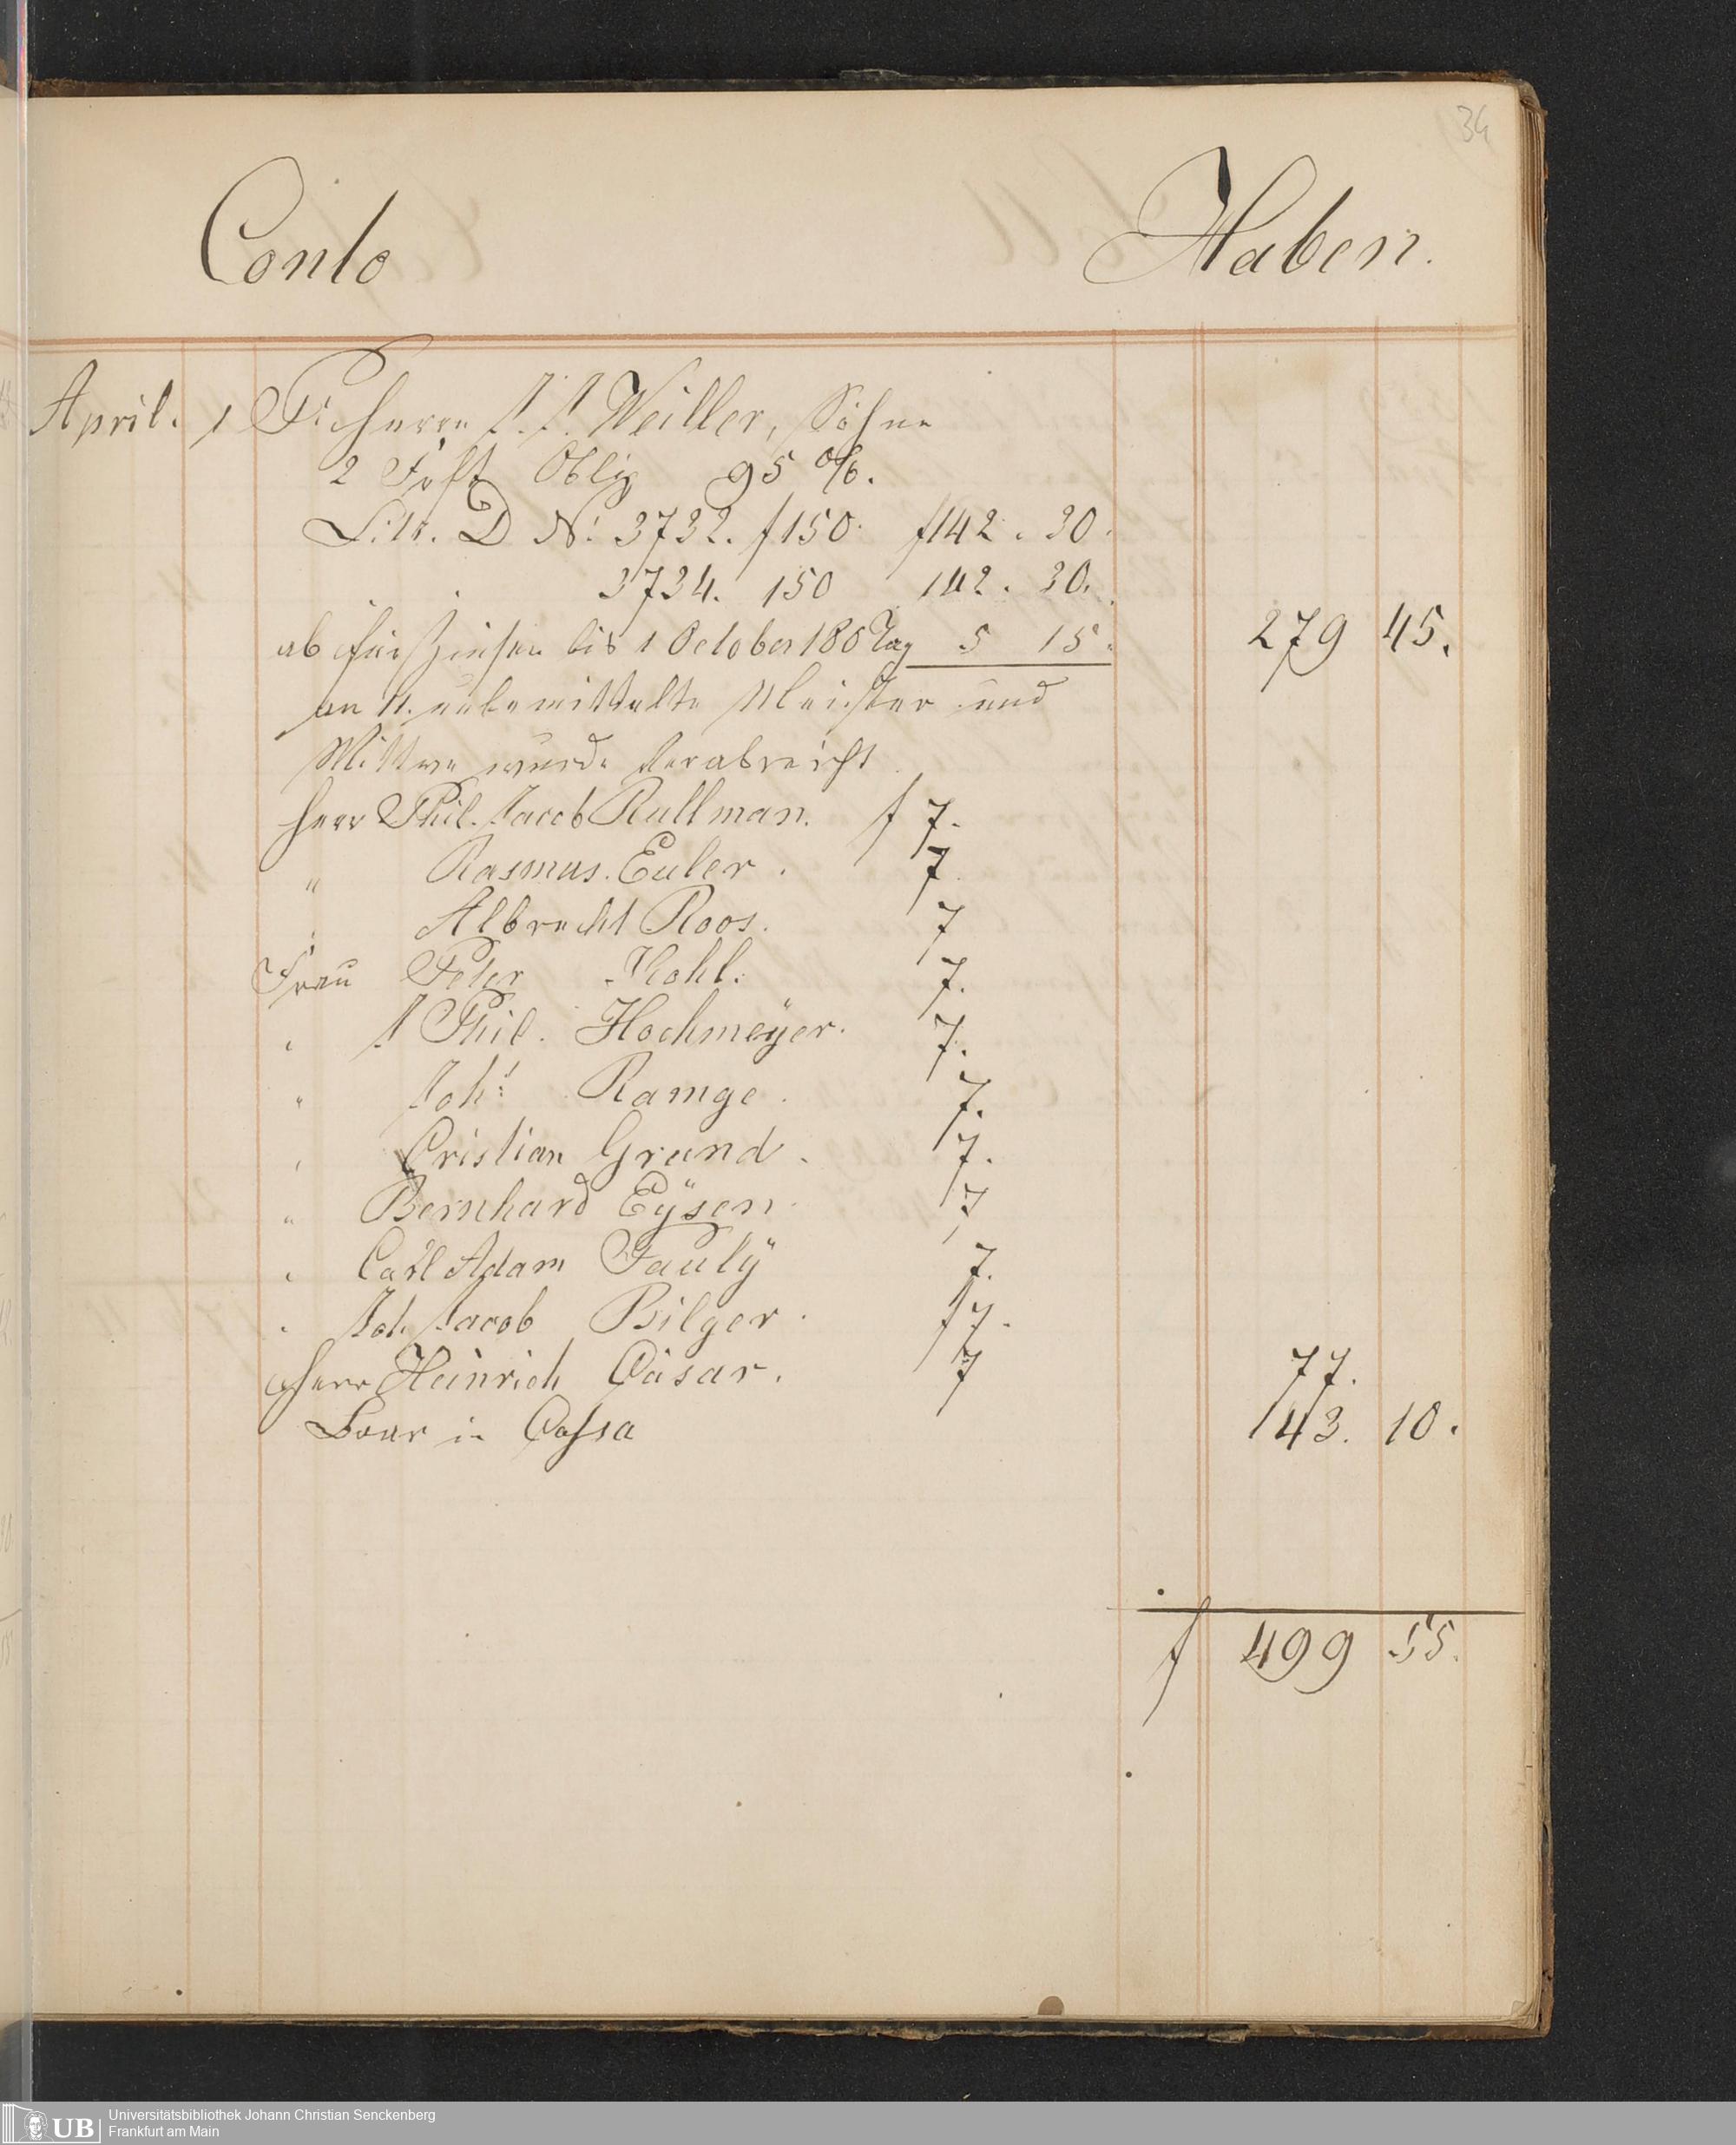 34
Conto Haben.
April. 1 Pr Herrn J. J. Weiller, Söhne
2 Frkft Oblig 95 %.
Litr. D No. 3732. f 150. f 142. 30.
3734. 150 142. 30.
ab für Zinsen bis 1 October 180 Tag 5 15. 279 45.
an 11. unbemittelte Meister und
Wittwe wurde verabreicht
Herr Phil. Jacob Rullman. f 7.
" Rasmus. Euler. 7
Albrecht Roos. 7
Frau Peter Kohl. 7.
" J Phil. Hochmeÿer. 7.
" Joh: Ramge. 7.
" Cristian Grund. 7.
" Bernhard Eÿsen 7
" Carl Adam Paulÿ 7.
" Joh Jacob Bilger. 7.
Herr Heinrich Cäsar. 7 77.
Baar in Cassa 143. 10.
f 499 55.
UB Universitätsbibliothek Johann Christian Senckenberg
Frankfurt am Main